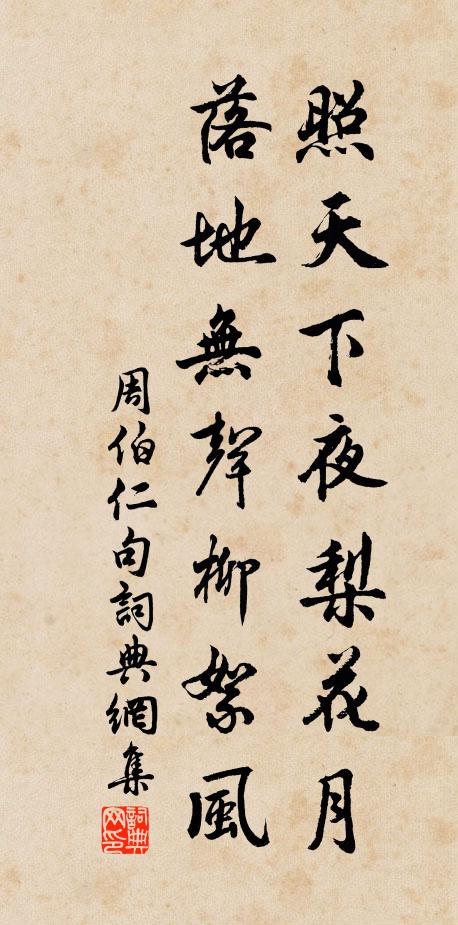 照天下夜梨花月
落地無聲柳絮風
周伯仁句詞典網集
詞典网印